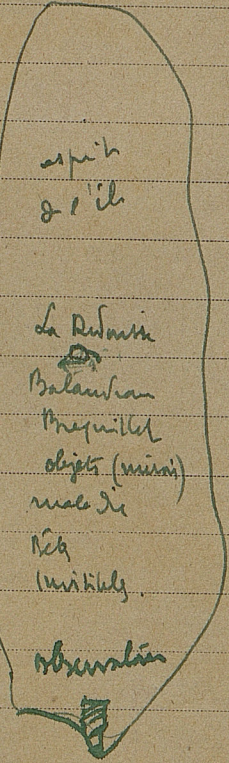 esprit
de l'île
La Redousse
Balandran
Brequillet
objets (miroir)
maladie
Bêtes
invisibles.
observatoire